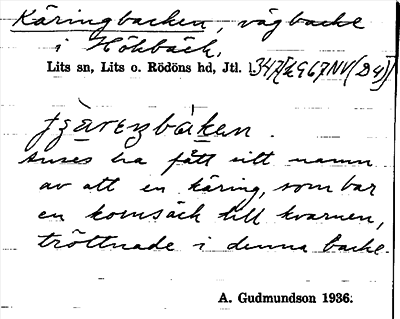 Käringbacken, vägbacke
i Hökbäck,
Lits sn, Lits o. Rödöns hd, Jtl.
anses ha fått sitt namn
av att en käring, som bar
en kornsäck till kvarnen,
tröttnade i denna backe.
A. Gudmundson 1936.